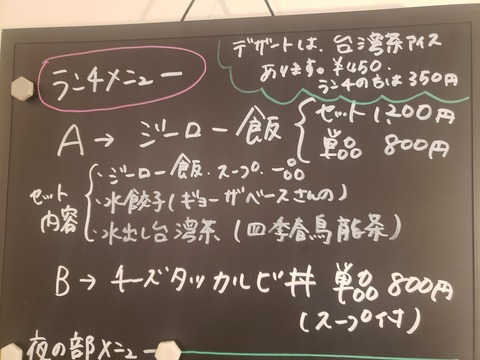 ランチメニュー
デザートは、台湾茶アイス
あります。¥450.
ランチのちは350円
A→ ジーロー飯
セット 1,200円
単品 800円
セット内容
・ジーロー飯・スープ・一品
・水餃子(ギョーザベースさんの)
・水出し台湾茶(四季春烏龍茶)
B→ チーズタッカルビ丼 単品 800円
(スープ付)
夜の部メニュー